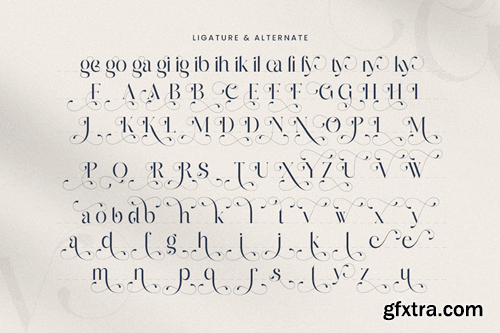 LIGATURE & ALTERNATE
ge go ga gi ig ib ih ik il ca li fy ty ry ky
F A A B B C E F F G G H H I
J K K L M D D N N O P I M
P Q R R S T U X Y Z U V W
a o b d b h k l t v w x y
a d f g h i j k l c e
m n p q r s t y z u
gfxtra.com